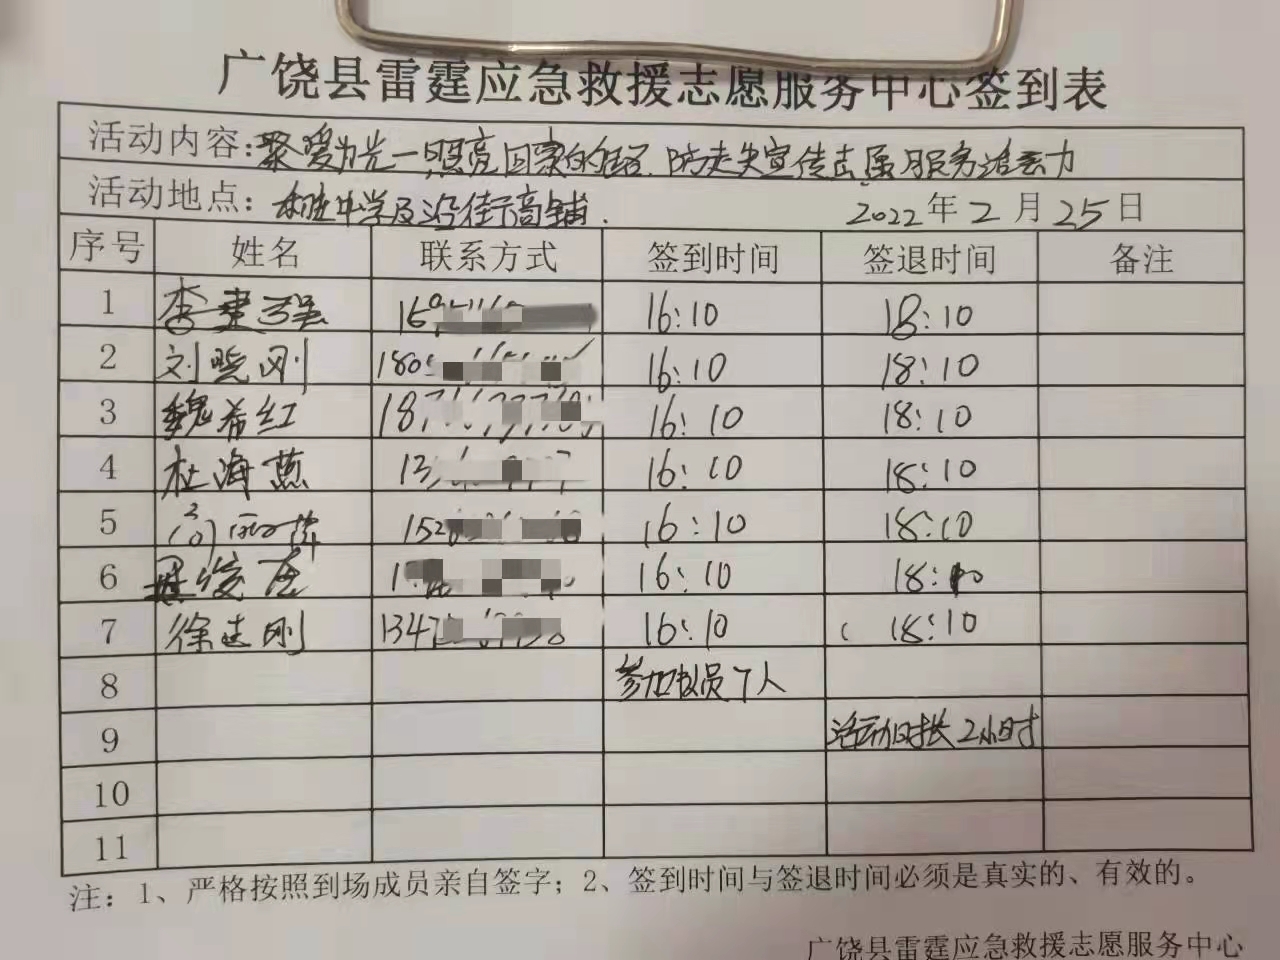 广饶县雷霆应急救援志愿服务中心签到表
活动内容:聚爱为光一照亮回家的路.防走失宣传志愿服务活动
活动地点: 中学及沿街商铺.
2022年2月25日
序号 姓名 联系方式 签到时间 签退时间 备注
1 李建强 16:10 18:10
2 刘晓刚 180 16:10 18:10
3 魏希红 187 16:10 18:10
4 杜海燕 13 16:10 18:10
5 152 16:10 18:10
6 16:10 18:10
7 徐志刚 1347 16:10 18:10
8 参加队员7人
9 活动时长2小时
10
11
注：1、严格按照到场成员亲自签字；2、签到时间与签退时间必须是真实的、有效的。
广饶县雷霆应急救援志愿服务中心